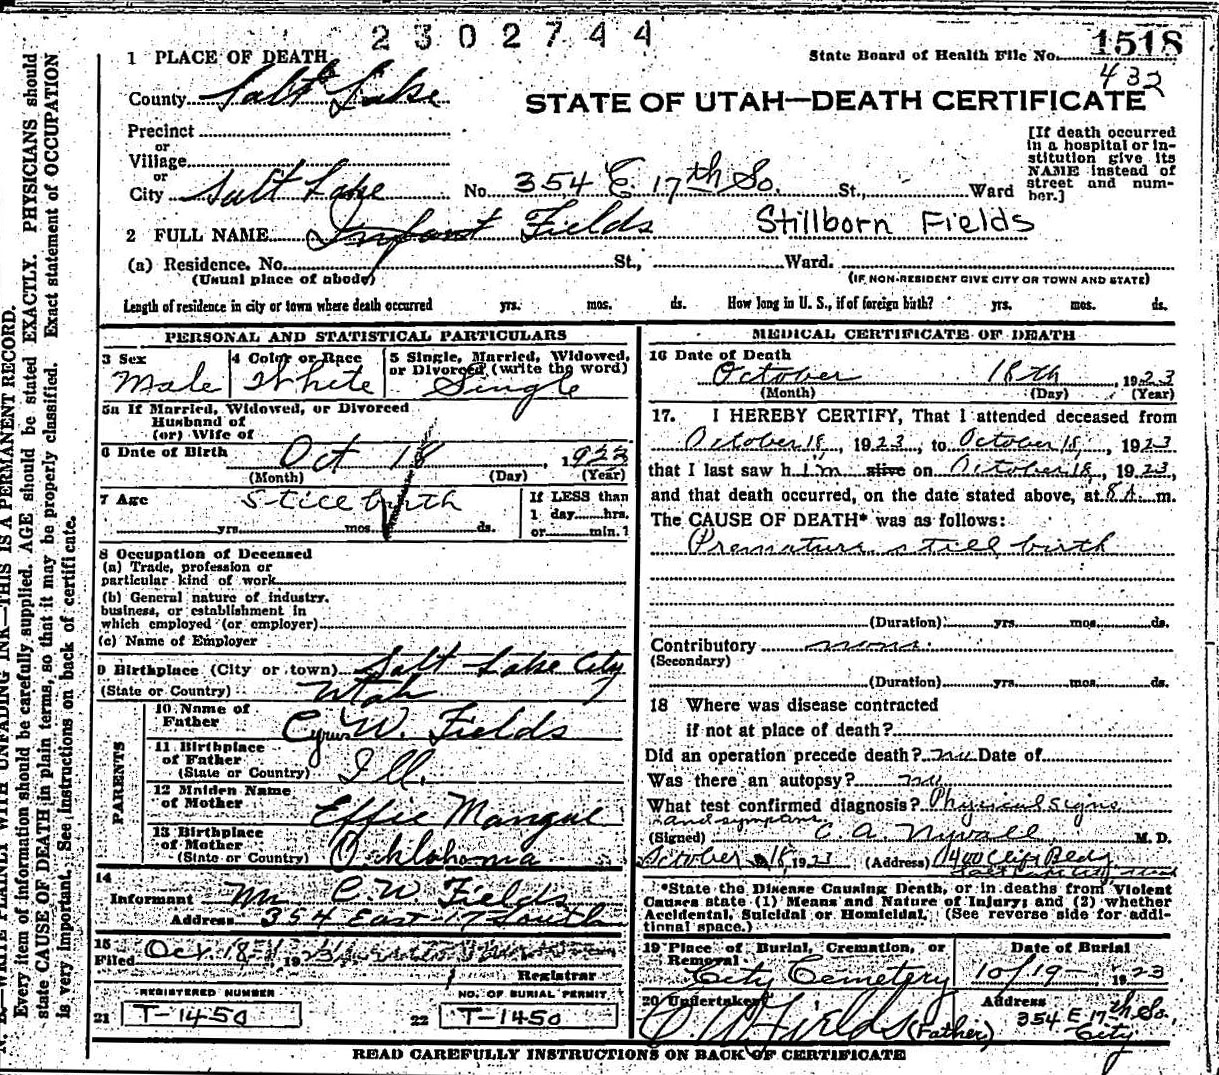 2302744
1 PLACE OF DEATH
State Board of Health File No. 1518
432
County Salt Lake
STATE OF UTAH—DEATH CERTIFICATE
Precinct
or
Village
or
City Salt Lake No. 354 E. 17th So. St., Ward
[If death occurred
in a hospital or in-
stitution give its
NAME instead of
street and num-
ber.]
2 FULL NAME Infant Fields Stillborn Fields
(a) Residence. No. St., Ward.
(Usual place of abode) (IF NON-RESIDENT GIVE CITY OR TOWN AND STATE)
Length of residence in city or town where death occurred yrs. mos. ds. How long in U. S., if of foreign birth? yrs. mos. ds.
PERSONAL AND STATISTICAL PARTICULARS
3 Sex 4 Color or Race 5 Single, Married, Widowed,
or Divorced (write the word)
Male White Single
5a If Married, Widowed, or Divorced
Husband of
(or) Wife of
6 Date of Birth Oct 18, 1923
(Month) (Day) (Year)
7 Age Still birth If LESS than
1 day hrs.
yrs. mos. ds. or min.
8 Occupation of Deceased
(a) Trade, profession or
particular kind of work
(b) General nature of industry,
business, or establishment in
which employed (or employer)
(c) Name of Employer
9 Birthplace (City or town) Salt Lake City
(State or Country) Utah
PARENTS
10 Name of
Father Cyrus W. Fields
11 Birthplace
of Father
(State or Country) Ill.
12 Maiden Name
of Mother Effie Mangul
13 Birthplace
of Mother
(State or Country) Oklahoma
14
Informant Mr C. W. Fields
Address 354 East 17 South
15
Filed Oct. 18 1923
Registrar
REGISTERED NUMBER NO. OF BURIAL PERMIT
21 T-1450 22 T-1450
MEDICAL CERTIFICATE OF DEATH
16 Date of Death
October 18th, 1923
(Month) (Day) (Year)
17. I HEREBY CERTIFY, That I attended deceased from
October 18, 1923, to October 18, 1923
that I last saw him alive on October 18, 1923,
and that death occurred, on the date stated above, at 8 A. m.
The CAUSE OF DEATH* was as follows:
Premature still birth
(Duration) yrs. mos. ds.
Contributory none.
(Secondary)
(Duration) yrs. mos. ds.
18 Where was disease contracted
if not at place of death?
Did an operation precede death? no Date of
Was there an autopsy? no
What test confirmed diagnosis? Physical signs
and symptoms
(Signed) C. A. Nyvall M. D.
October 18, 1923 (Address) 1400 Clift Bldg
*State the Disease Causing Death, or in deaths from Violent
Causes state (1) Means and Nature of Injury; and (2) whether
Accidental, Suicidal or Homicidal. (See reverse side for addi-
tional space.)
19 Place of Burial, Cremation, or Date of Burial
Removal
City Cemetery 10/19- 1923
20 Undertaker Address
C. W. Fields (Father) 354 E 17th So.,
City
READ CAREFULLY INSTRUCTIONS ON BACK OF CERTIFICATE
N. B.—WRITE PLAINLY WITH UNFADING INK—THIS IS A PERMANENT RECORD.
Every item of information should be carefully supplied. AGE should be stated EXACTLY. PHYSICIANS should
state CAUSE OF DEATH in plain terms, so that it may be properly classified. Exact statement of OCCUPATION
is very important. See instructions on back of certificate.